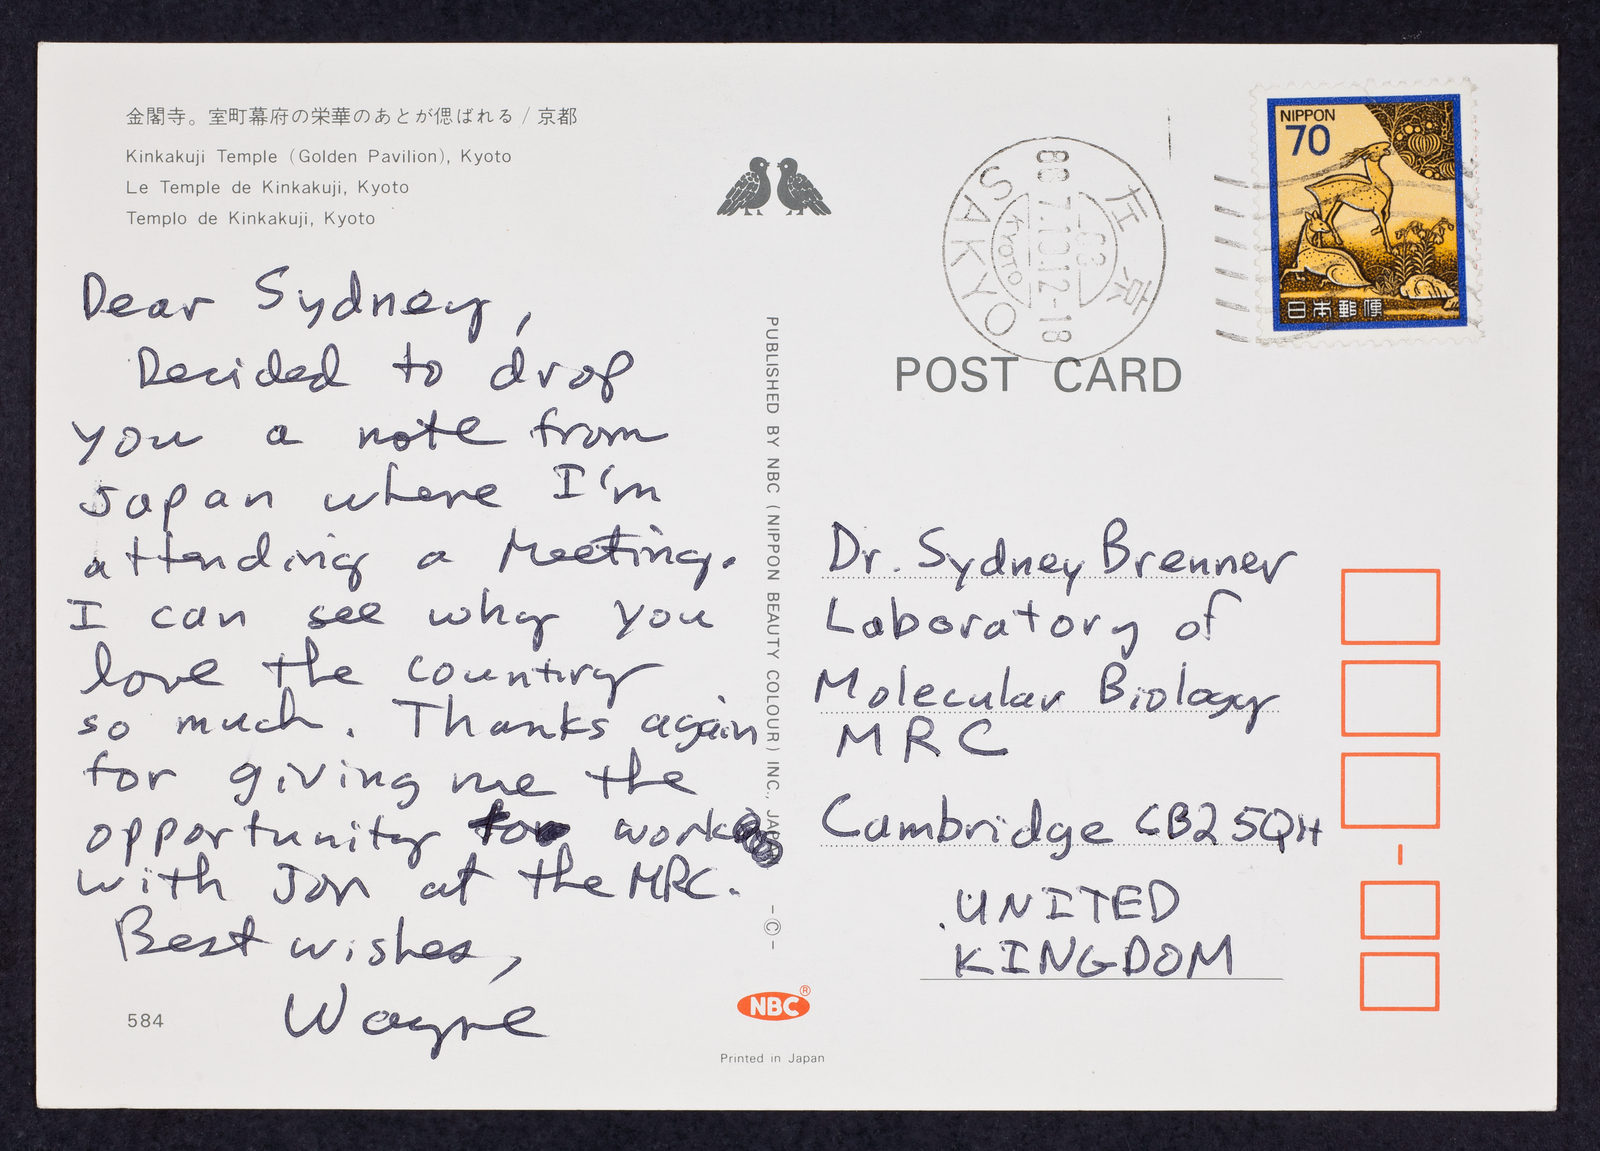 金閣寺。室町幕府の栄華のあとが偲ばれる / 京都
Kinkakuji Temple (Golden Pavilion), Kyoto
Le Temple de Kinkakuji, Kyoto
Templo de Kinkakuji, Kyoto
Dear Sydney,
Decided to drop
you a note from
Japan where I'm
attending a Meeting.
I can see why you
love the country
so much. Thanks again
for giving me the
opportunity to work
with Jon at the MRC.
Best wishes,
Wayne
584
PUBLISHED BY NBC (NIPPON BEAUTY COLOUR) INC., JAPAN
-©-
NBC®
Printed in Japan
左京
SAKYO
KYOTO
12-18
NIPPON
70
日本郵便
POST CARD
Dr. Sydney Brenner
Laboratory of
Molecular Biology
MRC
Cambridge CB2 5QH
UNITED
KINGDOM